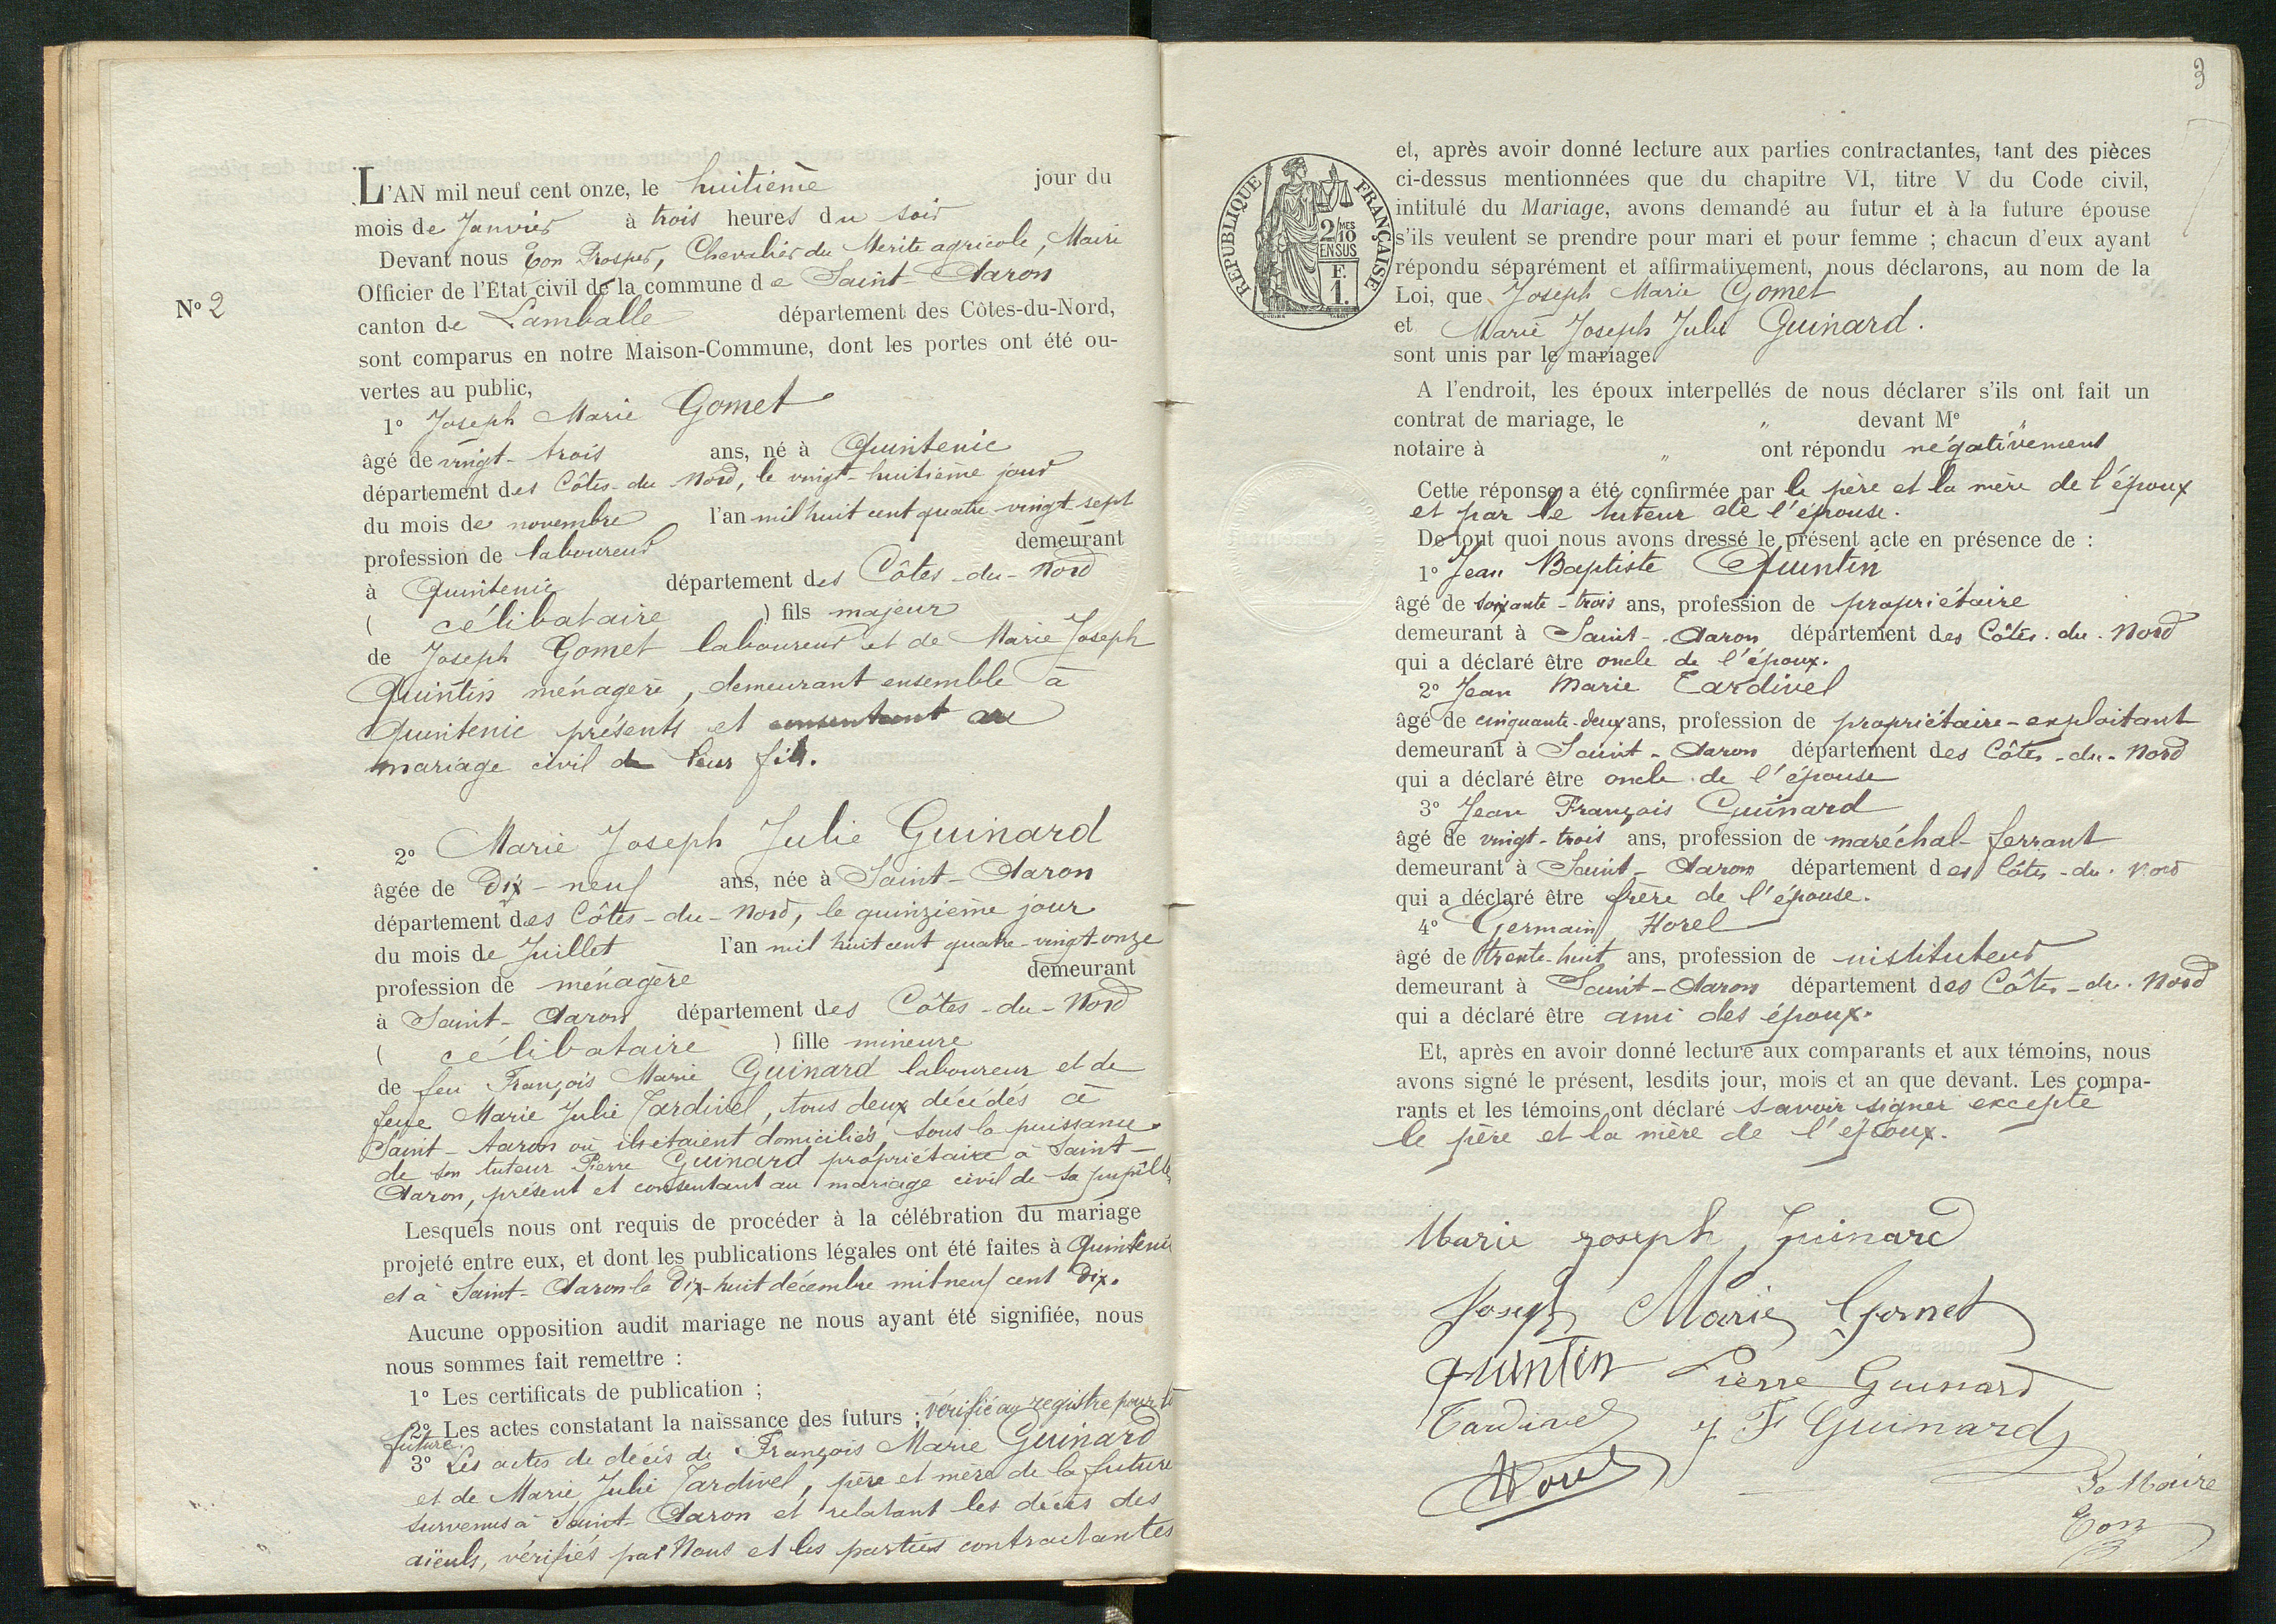 L'AN mil neuf cent onze, le huitième jour du
mois de Janvier à trois heures du soir
Devant nous Eon Prosper, Chevalier du Merite agricole, Maire
Officier de l'État civil de la commune de Saint-Aaron
No 2
canton de Lamballe département des Côtes-du-Nord,
sont comparus en notre Maison-Commune, dont les portes ont été ou-
vertes au public,
1o Joseph Marie Gomet
âgé de vingt-trois ans, né à Quintenic
département des Côtes-du-Nord, le vingt-huitième jour
du mois de novembre l'an mil huit cent quatre vingt sept
profession de laboureur demeurant
à Quintenic département des Côtes-du-Nord
( célibataire ) fils majeur
de Joseph Gomet laboureur et de Marie Joseph
Quintin ménagère, demeurant ensemble à
Quintenic présents et consentant au
mariage civil de leur fils.
2o Marie Joseph Julie Guinard
âgée de Dix-neuf ans, née à Saint-Aaron
département des Côtes-du-Nord, le quinzième jour
du mois de Juillet l'an mil huit cent quatre-vingt-onze
profession de ménagère demeurant
à Saint-Aaron département des Côtes-du-Nord
( célibataire ) fille mineure
de feu François Marie Guinard laboureur et de
feue Marie Julie Tardivel, tous deux décédés à
Saint-Aaron où ils étaient domiciliés, sous la puissance
de son tuteur Pierre Guinard propriétaire à Saint-
Aaron, présent et consentant au mariage civil de sa pupille
Lesquels nous ont requis de procéder à la célébration du mariage
projeté entre eux, et dont les publications légales ont été faites à Quintenic
et à Saint-Aaron le Dix-huit décembre mil neuf cent Dix.
Aucune opposition audit mariage ne nous ayant été signifiée, nous
nous sommes fait remettre :
1o Les certificats de publication ;
2o Les actes constatant la naissance des futurs ; vérifié au registre pour la
future.
3o Les actes de décès de François Marie Guinard
et de Marie Julie Tardivel, père et mère de la future
survenus à Saint-Aaron et relatant les décès des
aïeuls, vérifiés par Nous et les parties contractantes
3
RÉPUBLIQUE FRANÇAISE
2/10MES
EN SUS
F.
1.
et, après avoir donné lecture aux parties contractantes, tant des pièces
ci-dessus mentionnées que du chapitre VI, titre V du Code civil,
intitulé du Mariage, avons demandé au futur et à la future épouse
s'ils veulent se prendre pour mari et pour femme ; chacun d'eux ayant
répondu séparément et affirmativement, nous déclarons, au nom de la
Loi, que Joseph Marie Gomet
et Marie Joseph Julie Guinard.
sont unis par le mariage.
A l'endroit, les époux interpellés de nous déclarer s'ils ont fait un
contrat de mariage, le " devant Me "
notaire à " ont répondu négativement
Cette réponse a été confirmée par le père et la mère de l'époux
et par le tuteur de l'épouse.
De tout quoi nous avons dressé le présent acte en présence de :
1o Jean Baptiste Quintin
âgé de soixante-trois ans, profession de propriétaire
demeurant à Saint-Aaron département des Côtes-du-Nord
qui a déclaré être oncle de l'époux.
2o Jean Marie Tardivel
âgé de cinquante-deux ans, profession de propriétaire-exploitant
demeurant à Saint-Aaron département des Côtes-du-Nord
qui a déclaré être oncle de l'épouse
3o Jean François Guinard
âgé de vingt-trois ans, profession de maréchal-ferrant
demeurant à Saint-Aaron département des Côtes-du-Nord
qui a déclaré être frère de l'épouse.
4o Germain Horel
âgé de trente-huit ans, profession de instituteur
demeurant à Saint-Aaron département des Côtes-du-Nord
qui a déclaré être ami des époux.
Et, après en avoir donné lecture aux comparants et aux témoins, nous
avons signé le présent, lesdits jour, mois et an que devant. Les compa-
rants et les témoins ont déclaré savoir signer excepté
le père et la mère de l'époux.
Marie joseph Guinard
Joseph Marie Gomet
quintin Pierre Guinard
Tardivel J F Guinard
Horel
Le Maire
Eon